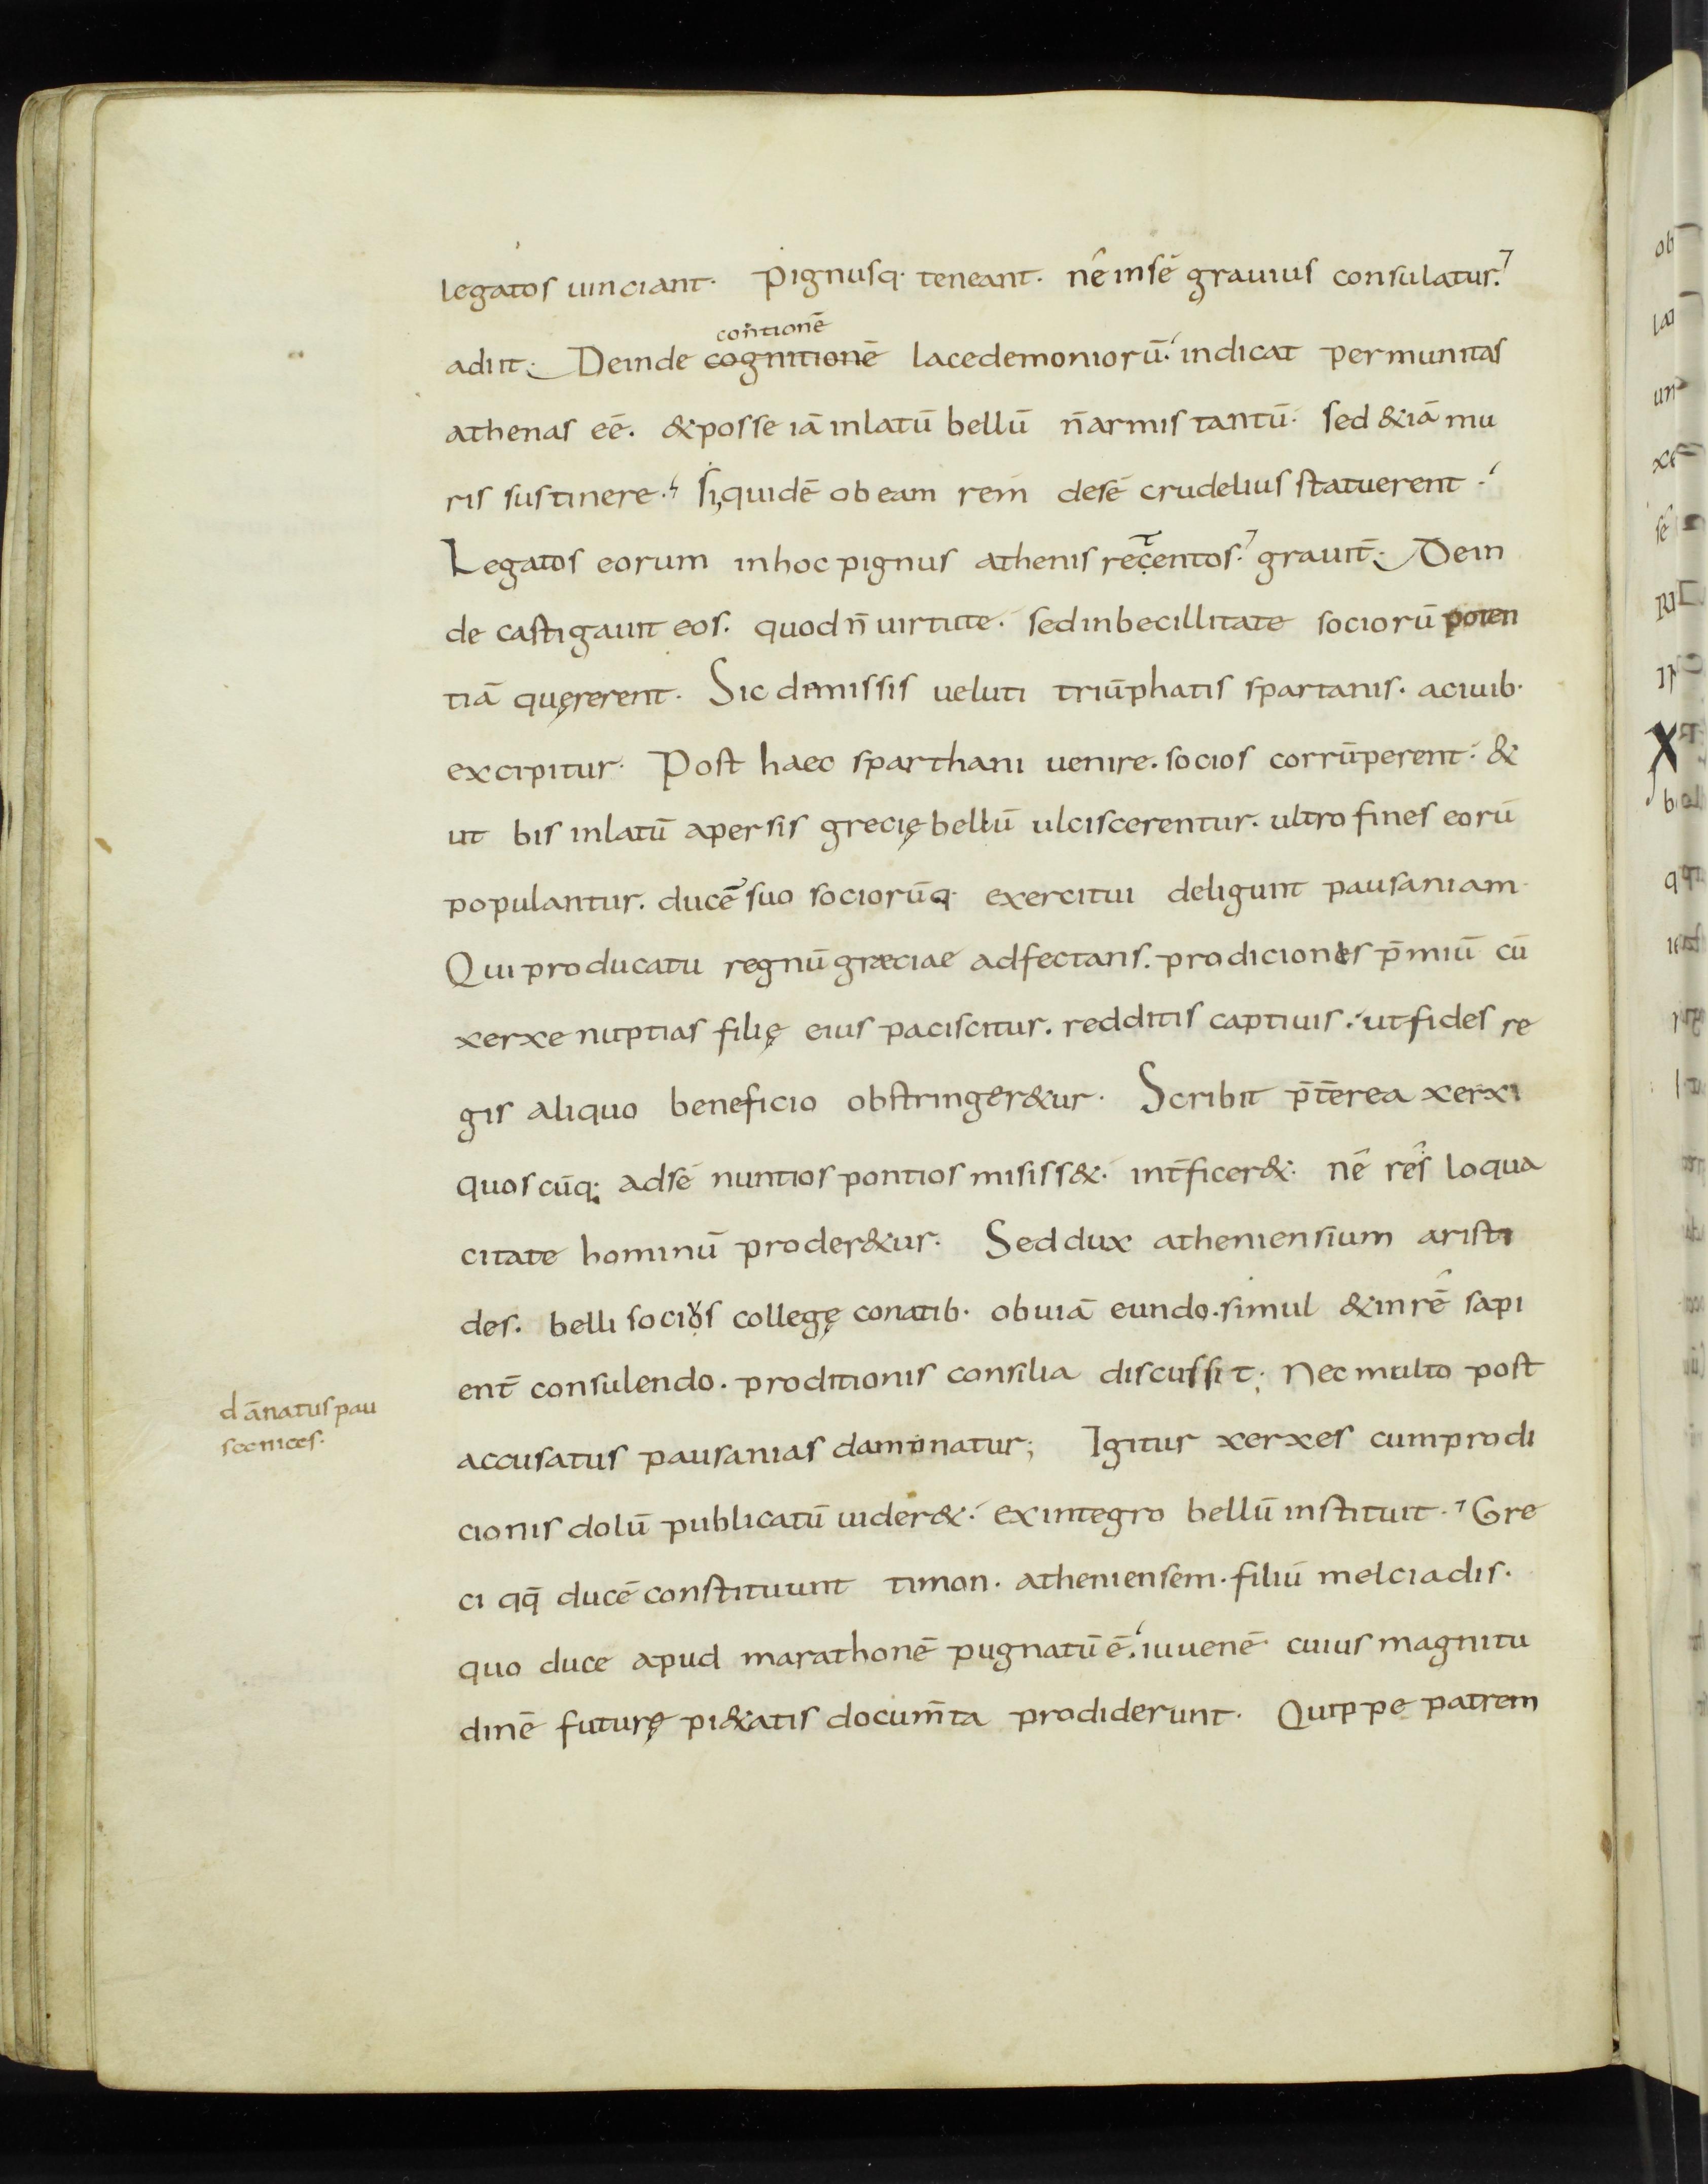 legatos uinciant· Pignusq· teneant· nê insé grauius consulatur·
contionē
adiit; Deinde cognitionē lacedemoniorū· indicat permunitas
athenas eē· &posse iā inlatū bellū n̄armis tantū· sed &iā mu
ris sustinere· Si,quidē obeam rem desé crudelius statuerent·
Legatos eorum inhoc pignus athenis recentos· grauit̄; Dein
de castigauit eos· quod n̄ uirtute· sedinbecillitate sociorū poten
tiā quęrerent· Sic dimissis ueluti triūphatis spartanis· aciuib·
excipitur· Post haec sparthani uenire· socios corrūperent· &
ut bis inlatū apersis grecię bellū ulciscerentur· ultro fines eorū
populantur· ducē suo sociorūq· exercitui deligunt pausaniam·
Qui producatu regnū græciae adfectans· prodiciones p̄miū cū
xerxe nuptias filię eius paciscitur· redditis captiuis· ut fides re
gis aliquo beneficio obstringer&ur· Scribit p̄t̄erea xerxi
quoscūq; adsé nuntios pontios misiss&· int̄ficer&· nê rês loqua
citate hominū proder&ur· Sed dux atheniensium aristi
des· belli socios collegę conatib· obuiā eundo· simul &inrê sapi
ent̄ consulendo· proditionis consilia discussit; Nec multo post
dānatus pau
sccnices·
accusatus pausanias damnatur; Igitur xerxes cumprodi
cionis dolū publicatū uider&· exintegro bellū instituit· Gre
ci qq̄ ducē constituunt timon· atheniensem· filiū melciadis·
quo duce apud marathonē pugnatū ē· iuuenē· cuius magnitu
dinē futurę pi&atis docum̄ta prodiderunt· Quippe patrem